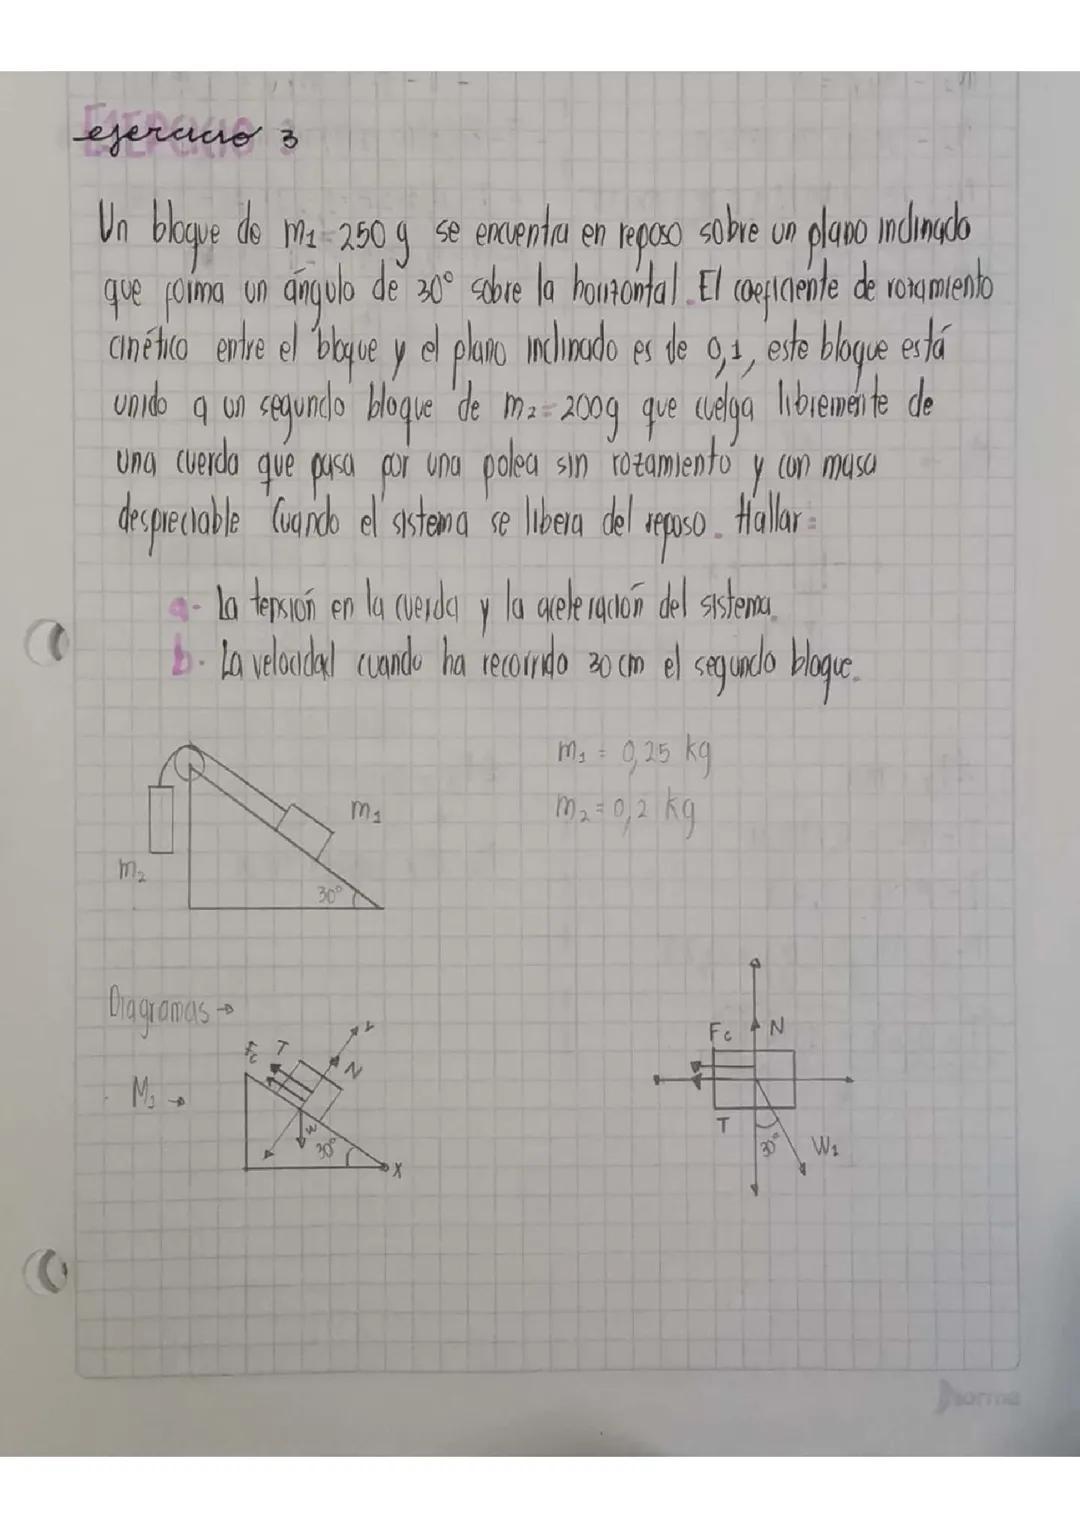 EJERCICIO
ejercicio 3
Un bloque de m1 = 250 g se encuentra en reposo sobre un plano inclinado
que forma un ángulo de 30° sobre la horizontal. El coeficiente de rozamiento
cinético entre el bloque y el plano inclinado es de 0,1, este bloque está
unido a un segundo bloque de m2 = 200g que cuelga libremente de
una cuerda que pasa por una polea sin rozamiento y con masa
despreciable Cuando el sistema se libera del reposo. Hallar:
a- La tensión en la cuerda y la aceleración del sistema.
b- La velocidad cuando ha recorrido 30 cm el segundo bloque.
m1 = 0,25 kg
m1
m2 = 0,2 kg
m2
30°
Diagramas →
Y
Fc T
N
Fc N
M1 →
W
30°
X
T
30°
W1
Norma